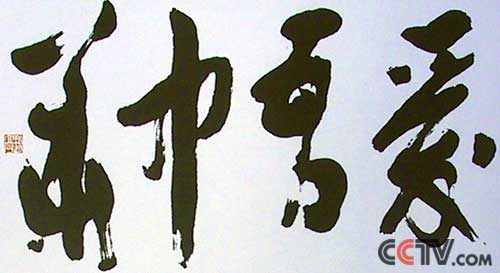 爱吾中华
CCTV.com